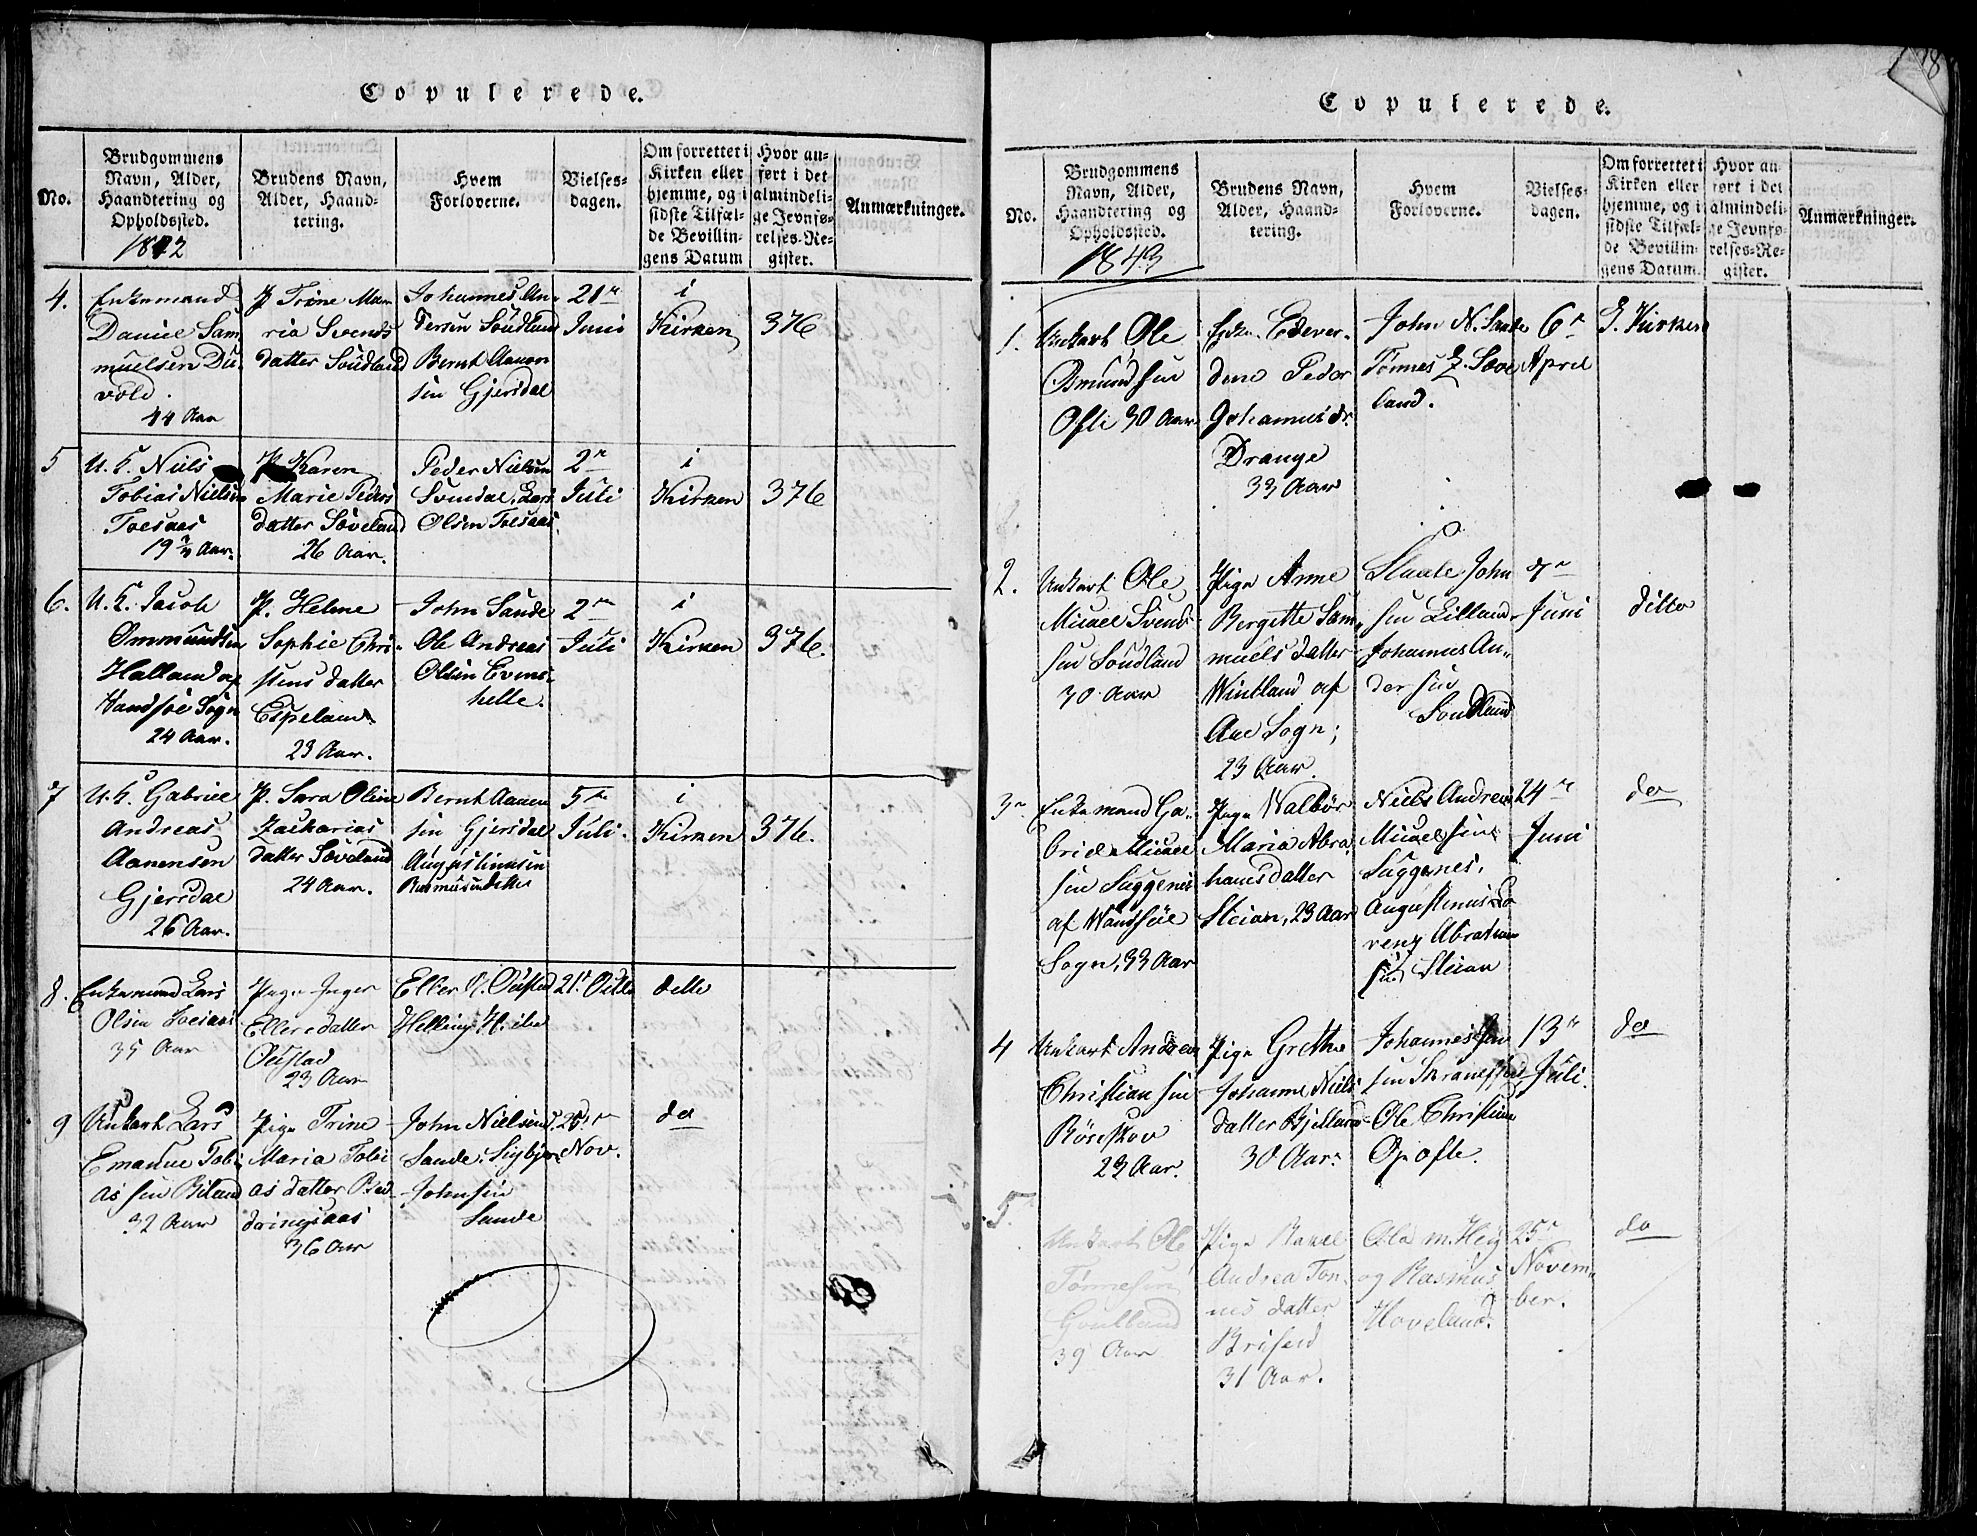 Copulerede.
No.
Brudgommens
Navn, Alder,
Haandtering og
Opholdssted.
1842
Brudens Navn,
Alder, Haand-
tering.
Hvem
Forloverne.
Vielses-
dagen.
Om forrettet i
Kirken eller
hjemme, og i
sidste Tilfæl-
de Bevillin-
gens Datum
Hvor an-
ført i det
almindeli-
ge Jevnfø-
relses-Re-
gister.
Anmærkninger.
4.
Enkemand
Daniel Sam
muelsen Du
vold.
44 Aar
P Trine Mar
ria Svends
datter Sóudland
Johannes An-
dersen Sóudland
Bernt Aanen
sen Gjersdal
21de
Juni
i
Kirken
376
5
U. K. Niels
Tobias Nielsen
Toesaas
19 Aar.
P Karen
Marie Peders
datter Soveland
26 Aar.
Peder Nielsen
Svindal, Lars
Olsen Toesaas.
2de
Juli
i
Kirken
376
6.
U. K. Jacob
Ommundsen
Halland af
Vandsøe Sogn
24 Aar.
P. Helene
Sophie Chri-
stens datter
Espeland
23 Aar.
John Sande
Ole Andreas
Olsen Evens-
helle.
2den
Juli
i
Kirken
376.
7
U. K. Gabriel
Andreas
Aanensen
Gjersdal
26 Aar.
P. Sara Oline
Zacharias
datter Soveland
24 Aar.
Bernt Aanen
sen Gjersdal
Augustinusen
5te
Juli.
i
Kirken
376.
8.
Enkemand Lars
Olsen Toesaas
35 Aar
Pige Inger
Ellers datter
Oustad
23 Aar
Eller O. Oustad
Helling H. ibd
21.
ditto
9
Unkarl Lars
Emanuel Tobi
as sen Biland
32 Aar
Pige Trine
Maria Tobi
as datter Bed
dringsaas
36 Aar
John Nielsen
Sande, Sigbjørn
Johnsen
Sande
25de
Nov.
do
Copulerede.
18
No.
Brudgommens
Navn, Alder,
Haandtering og
Opholdssted.
1843
Brudens Navn,
Alder, Haand-
tering.
Hvem
Forloverne.
Vielses-
dagen.
Om forrettet i
Kirken eller
hjemme, og i
sidste Tilfæl-
de Bevillin-
gens Datum.
Hvor an
ført i det
almindeli-
ge Jevnfø-
relses-Re-
gister.
Anmærkninger.
1.
Unkarl Ole
Osmund sen
Ofte 30 Aar
Edever-
dine Peder
Johannesdr.
Drange
33 Aar
John N. Sande
Tønnes Z. Sove
land.
6te
April
I. Kirken
2.
Unkarl Ole
Micael Svend
sen Sóudland
30 Aar
Pige Anne
Bergitte Sam
muels datter
Wintland af
Aue Sogn;
23 Aar
Slaate John
sen Lilland
Johannes An-
der sen
Soudland
7de
Juni
ditto
3
Enkemand Ga-
briel Micael
sen Suggenes
af Wandsøe
Sogn, 33 Aar
Pige Walbór
Maria Abra
hamsdatter
Steian, 23 Aar
Niels Andreas
Micaelsen
Suggenes,
Augustinus Lo
renz Abraham
sen Steian
24de
Juni
do
4
Unkarl Andreas
Christian sen
Róseskov
23 Aar.
Pige Grethe
Johanne Niels
datter Bjelland
30 Aar.
Johannes
sen Skranefjeld
Ole Christian
Opofte.
13de
Juli.
do
5.
Unkarl Ole
Tønnesen
Goutland
39 Aar
Pige Rakel
Andrea Tón
nes datter
Briseid
31 Aar.
Ola m. Heig
og Rasmus
Hoveland.
25de
Novem-
ber.
do